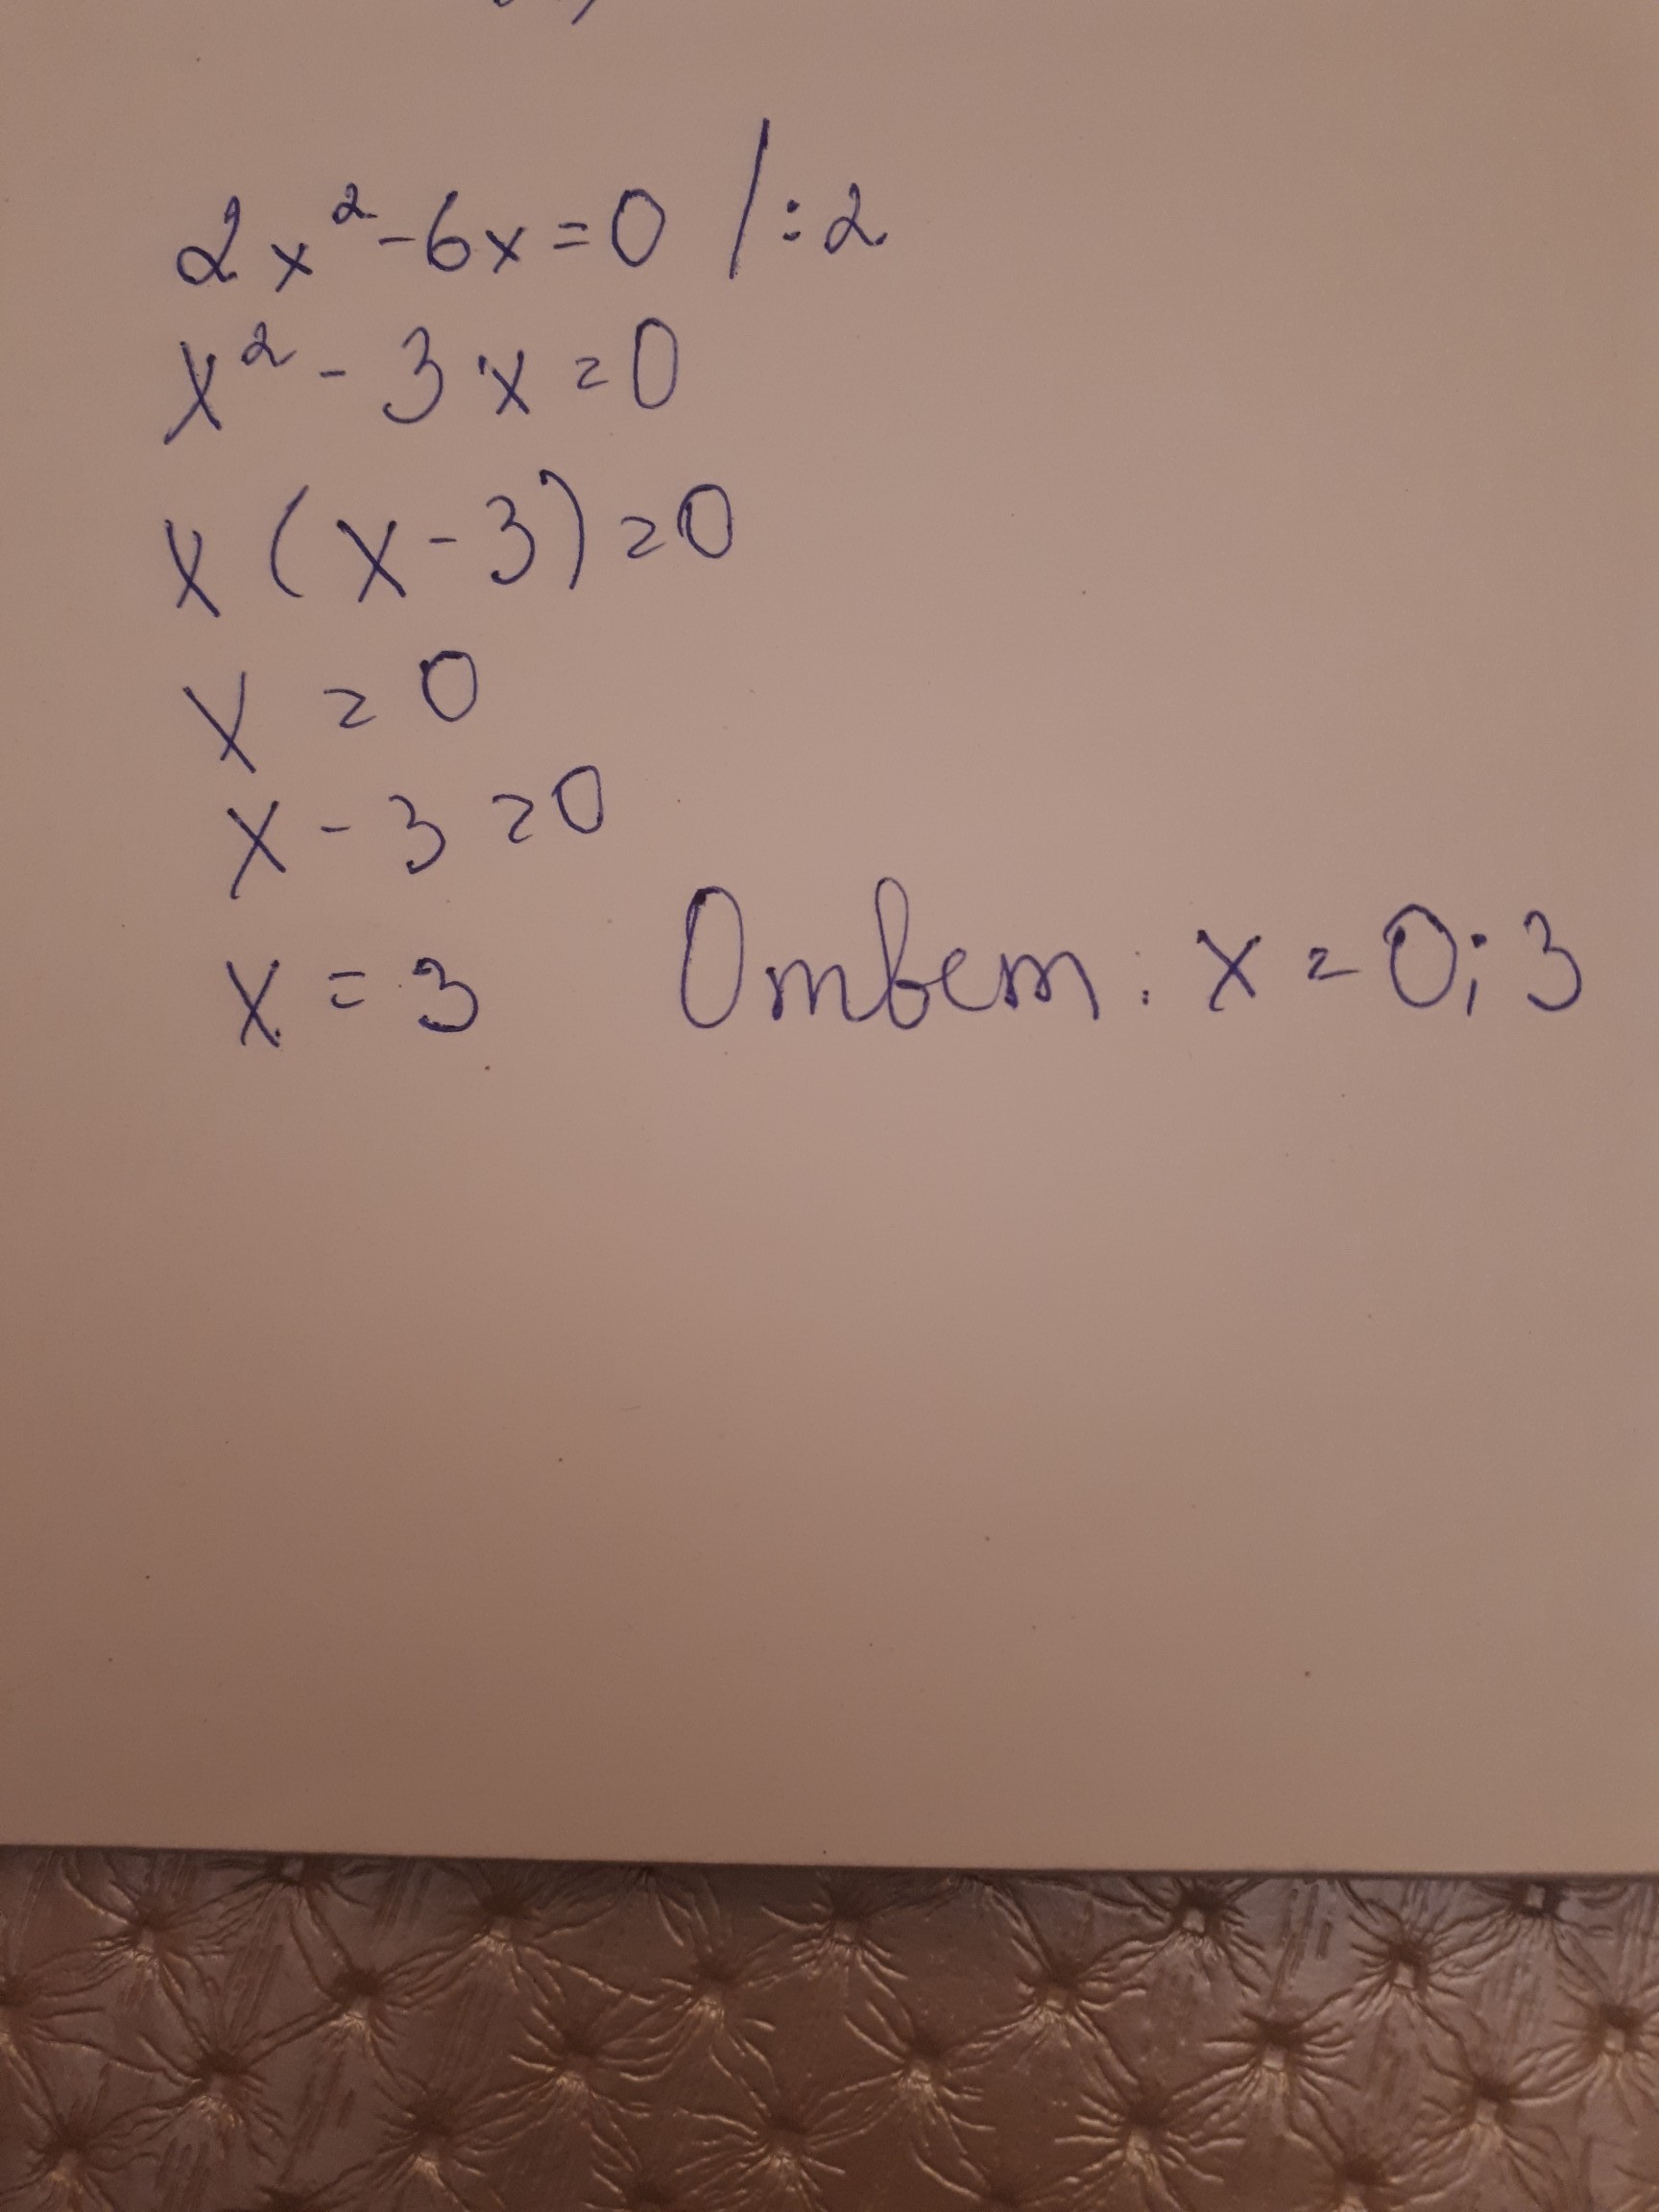 2x²-6x=0 /:2
x²-3x=0
x(x-3)=0
x=0
x-3=0
x=3 Ответ: x=0;3